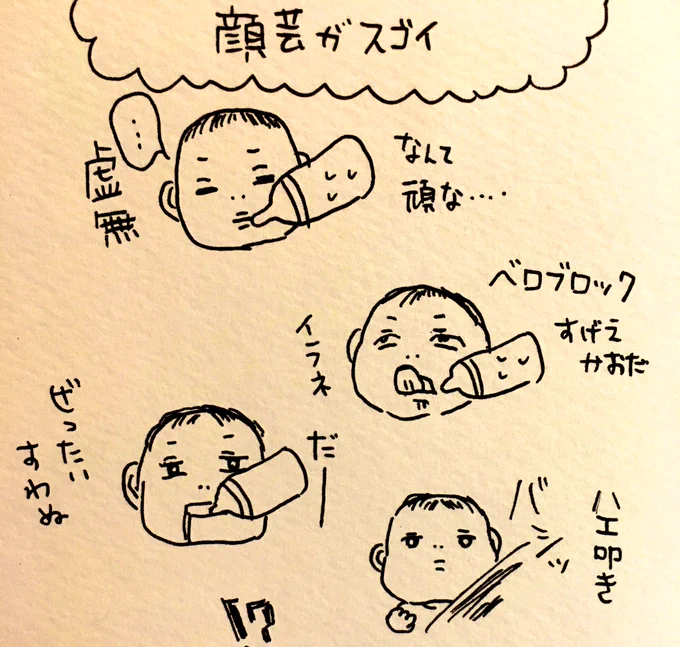 顔芸がスゴイ
…
虚無
なんて
頑な‥‥
ベロブロック
すげえ
かおだ
イラネ
ぜったい
すわぬ
だー
ハエ叩き
バシッ
!?